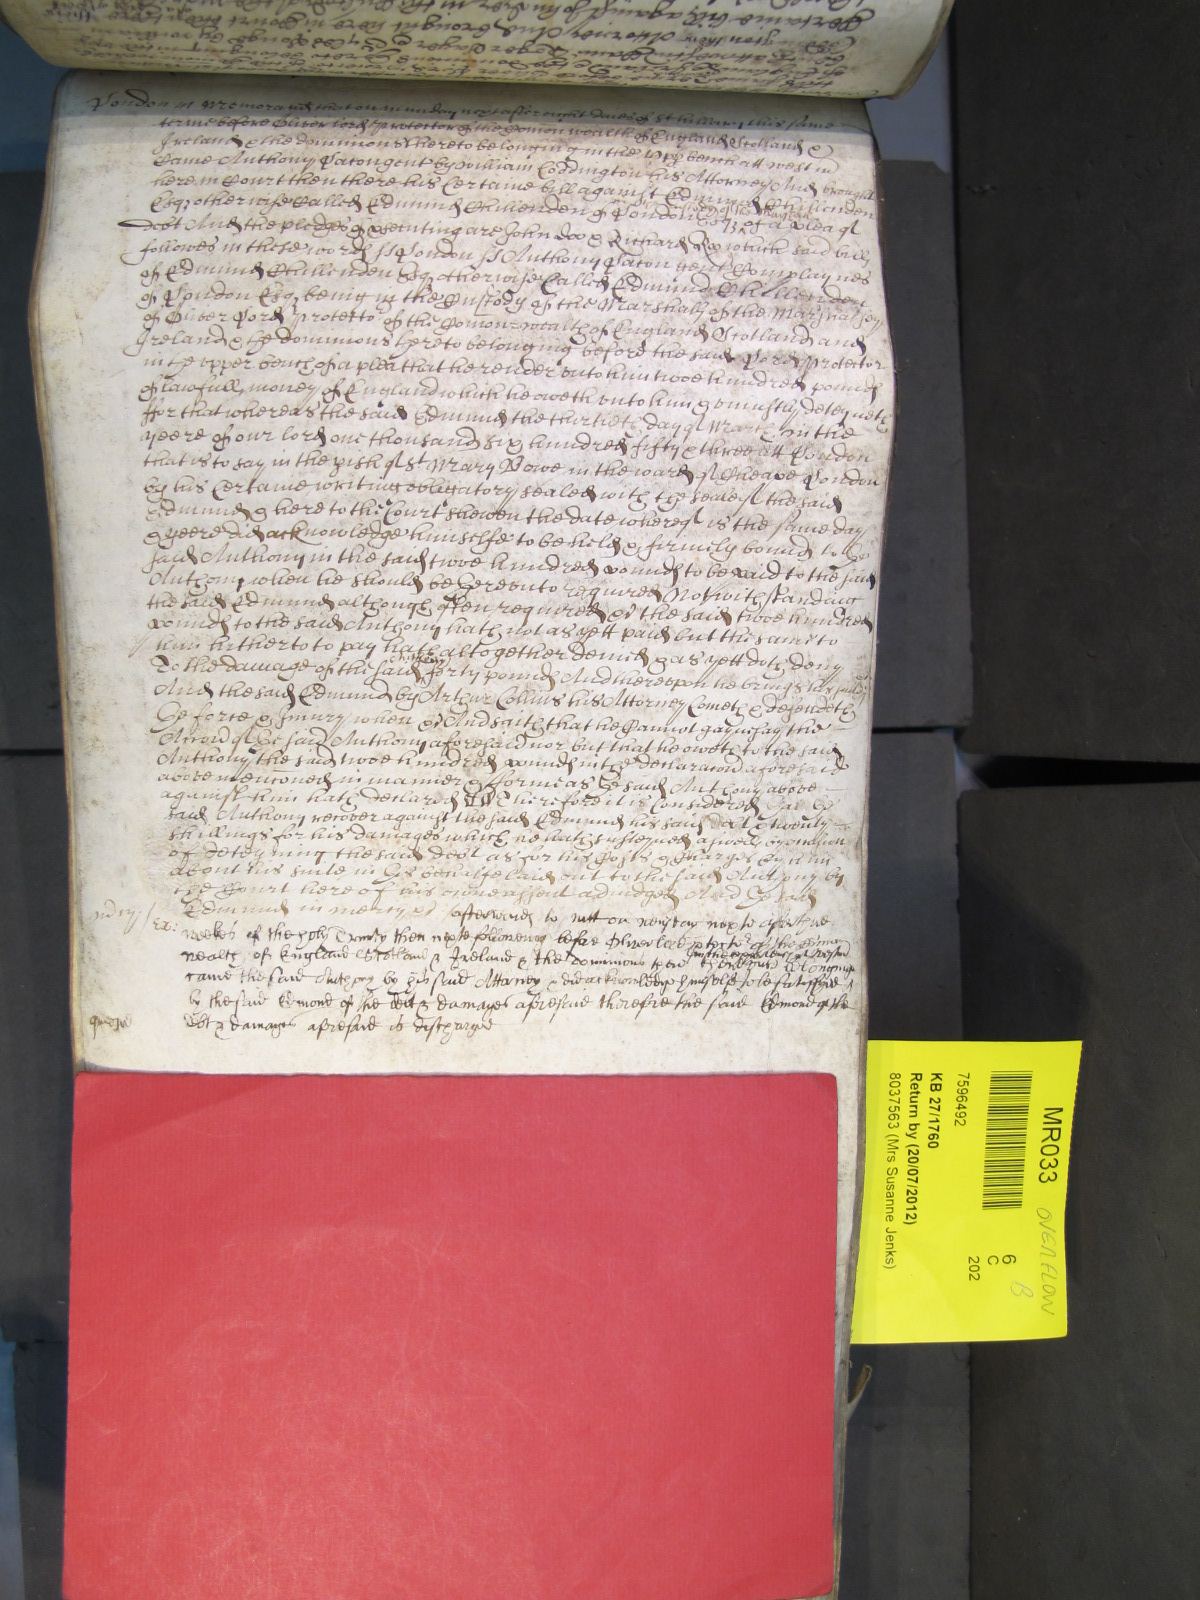 London ss Memorand that on munday next after eight daies of St hillary this same
terme before Oliver lord protector of the Comon wealth of England Scotland &
Ireland & the dominions thereto belonging in the upp bench att westm
Came Anthony Paton gent by William Coddington his Attorney And brought
here in Court then there his Certaine bill against Edmund Chillenden
Esq otherwise Called Edmund Chillenden of London Esq of a plea of
debt And the pledges of prosecuting are John doo & Richard Roo which said bill
followes in these words ss London ss Anthony Paton gent Complaynes
of Edmund Chillenden Esq otherwise Called Edmund Chillenden
of London Esq being in the Custody of the Marshall of the Marshalsey
of Oliver Lord Protector of the Comonwealth of England Scotland and
Ireland & the dominions thereto belonging before the said Lord Protector
in the upper bench of a plea that he render unto him twoe hundred pounds
of lawfull money of England which he oweth unto him & uniustly deteyneth
ffor that whereas the said Edmund the thirtieth day of March in the
yeere of our lord one thousand six hundred fifty & three att London
that is to say in the pish of St Mary Bowe in the ward of Cheape London
by his Certaine writing obligatory sealed with the seale of the said
Edmund & here to the Court shewen the date whereof is the same day
& yeere did acknowledge himselfe to be held & firmely bound to the
said Anthony in the said twoe hundred pounds to be paid to the said
Anthony when he should be thereunto required Notwithstanding
the said Edmund although often required &c the said twoe hundred
pounds to the said Anthony hath not as yett paid but the same to
him hitherto to pay hath altogether denied & as yett doth deny
To the damage of the said Anthony forty pounds And thereupon he brings his suite
And the said Edmund by Arthur Collins his Attorney Cometh & defendeth
the force & iniury when &c And saith that he Cannot gaynesay the
Accon of the said Anthony aforesaid nor but that he oweth to the said
Anthony the said twoe hundred pounds in the declaracon aforesaid
above mencioned in manner & forme as the said Anthony above
against him hath declared Therefore it is Considered that the
said Anthony recover against the said Edmund his said debt & twenty
shillings for his damages which he hath susteyned aswell by occasion
of deteyning the said debt as for his Costs & Charges by him
about his suite in this behalfe laid out to the said Anthony by
the Court here of his owne assent adiudged And the said
Edmund in mercy &c afterwards to witt on next after three
weekes of the holy Trinity then next following before Oliver lord protector of the Comon
wealth of England Scotland & Ireland & the dominions thereto belonging
came the said Anthony by his said Attorney & did acknowledge himselfe to be satisfied
by the said Edmond of the debt & damages aforesaid therefore the said Edmond of the
debt & damages aforesaid is discharged
MR033 OVERFLOW
6 B
C
202
7596492
KB 27/1760
Return by (20/07/2012)
8037563 (Mrs Susanne Jenks)